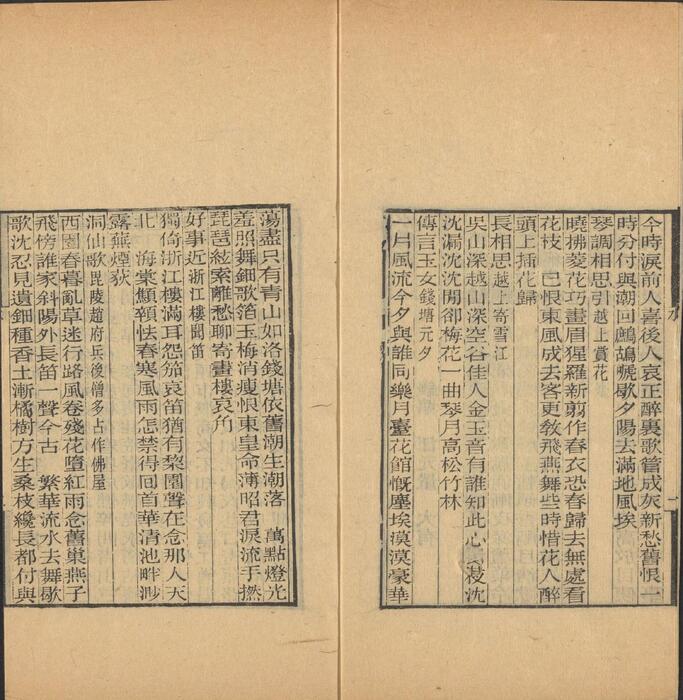 今時淚前人喜後人哀正醉裏歌管成灰新愁舊恨一
時分付與潮回鷓鴣嗁歇夕陽去滿地風埃
琴調相思引越上賞花
曉拂菱花巧畫眉猩羅新剪作春衣恐春歸去無處看
花枝　已恨東風成去客更敎飛燕舞些時惜花人醉
頭上插花歸
長相思越上寄雪江
吳山深越山深空谷佳人金玉音有誰知此心　夜沈
沈漏沈沈閒卻梅花一曲琴月高松竹林
傳言玉女錢塘元夕
一片風流今夕與誰同樂月臺花館慨塵埃漠漠豪華
蕩盡只有青山如洛錢塘依舊潮生潮落　萬點燈光
羞照舞鈿歌箔玉梅消瘦恨東皇命薄昭君淚流手撚
琵琶絃索離愁聊寄畫樓哀角
好事近浙江樓聞笛
獨倚浙江樓滿耳怨笳哀笛猶有梨園聲在念那人天
北　海棠顦顇怯春寒風雨怎禁得回首華清池畔渺
露蕪煙荻
洞仙歌毘陵趙府兵後僧多占作佛屋
西園春暮亂草迷行路風卷殘花墮紅雨念舊巢燕子
飛傍誰家斜陽外長笛一聲今古　繁華流水去舞歇
歌沈忍見遺鈿種香土漸橘樹方生桑枝纔長都付與